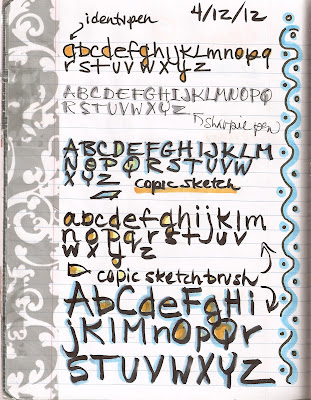 identipen 4/12/12
abcdefghijKLmnopq
rSTUVWXYZ
ABCDEFGHIJKLMNOPQ
RSTUVWXYZ
sharpie pen
ABCDEFGHIJKLM
NOPQRSTUVW
XYZ
copic sketch
abcdefghijklm
nopqrstuv
wxyz
copic sketch brush
AbCdeFgHi
jKlMnOpQr
STUVWXYZ